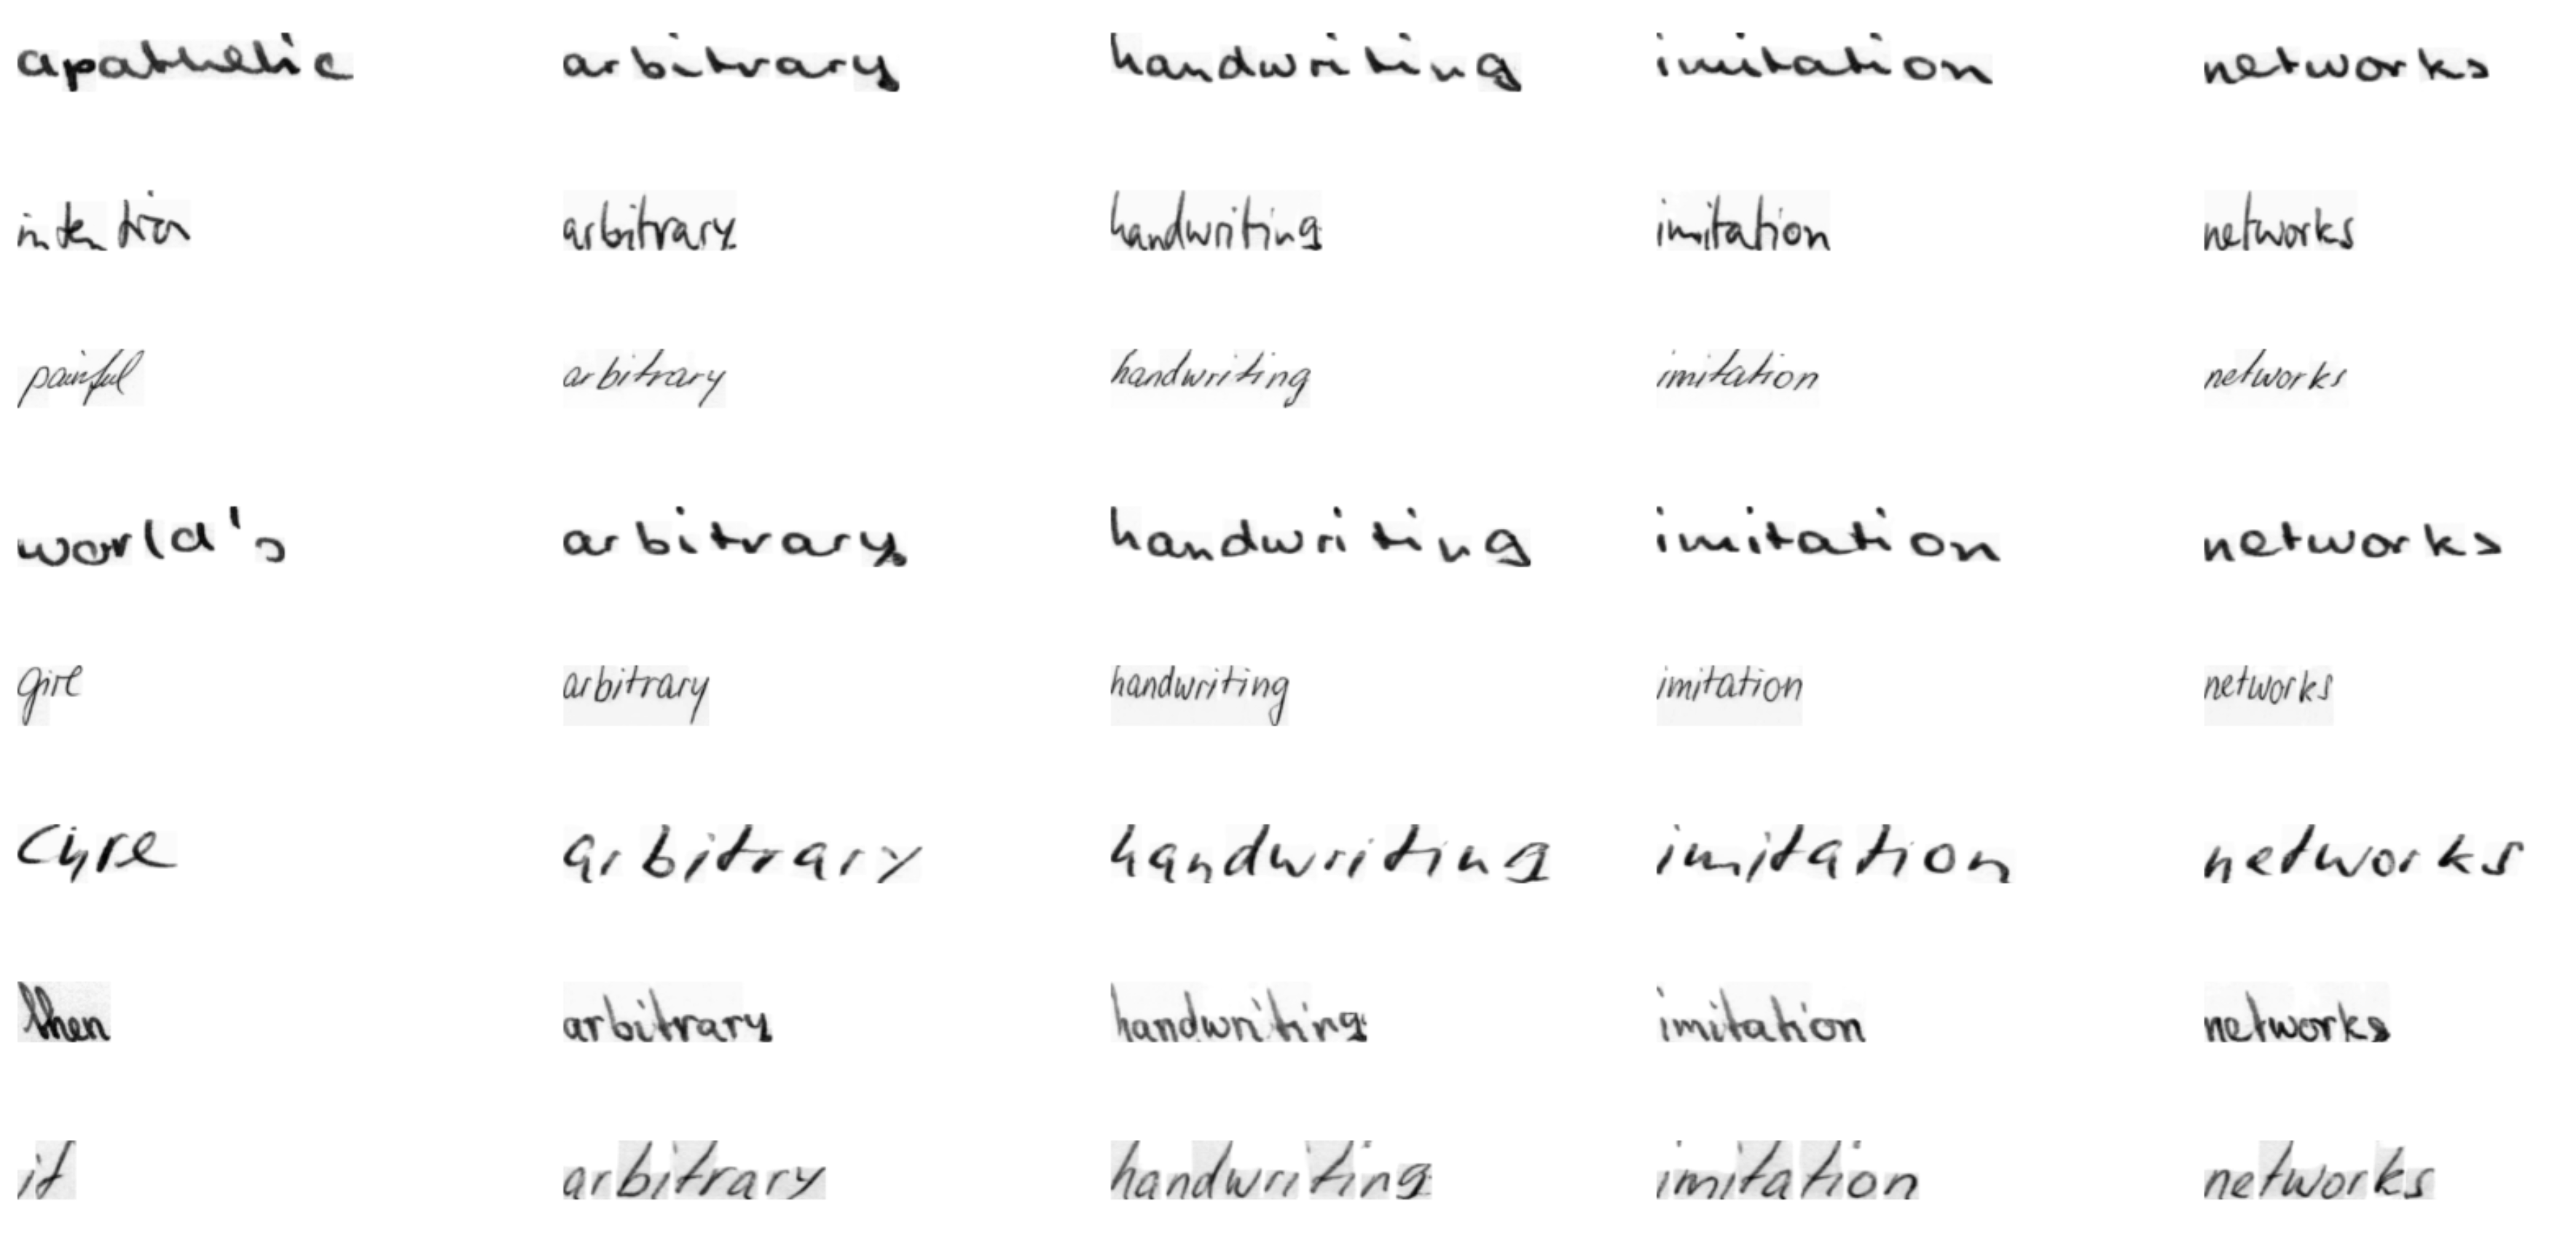 apathetic arbitrary handwriting imitation networks
intention arbitrary handwriting imitation networks
painful arbitrary handwriting imitation networks
world's arbitrary handwriting imitation networks
girl arbitrary handwriting imitation networks
arbitrary handwriting imitation networks
then arbitrary handwriting imitation networks
it arbitrary handwriting imitation networks